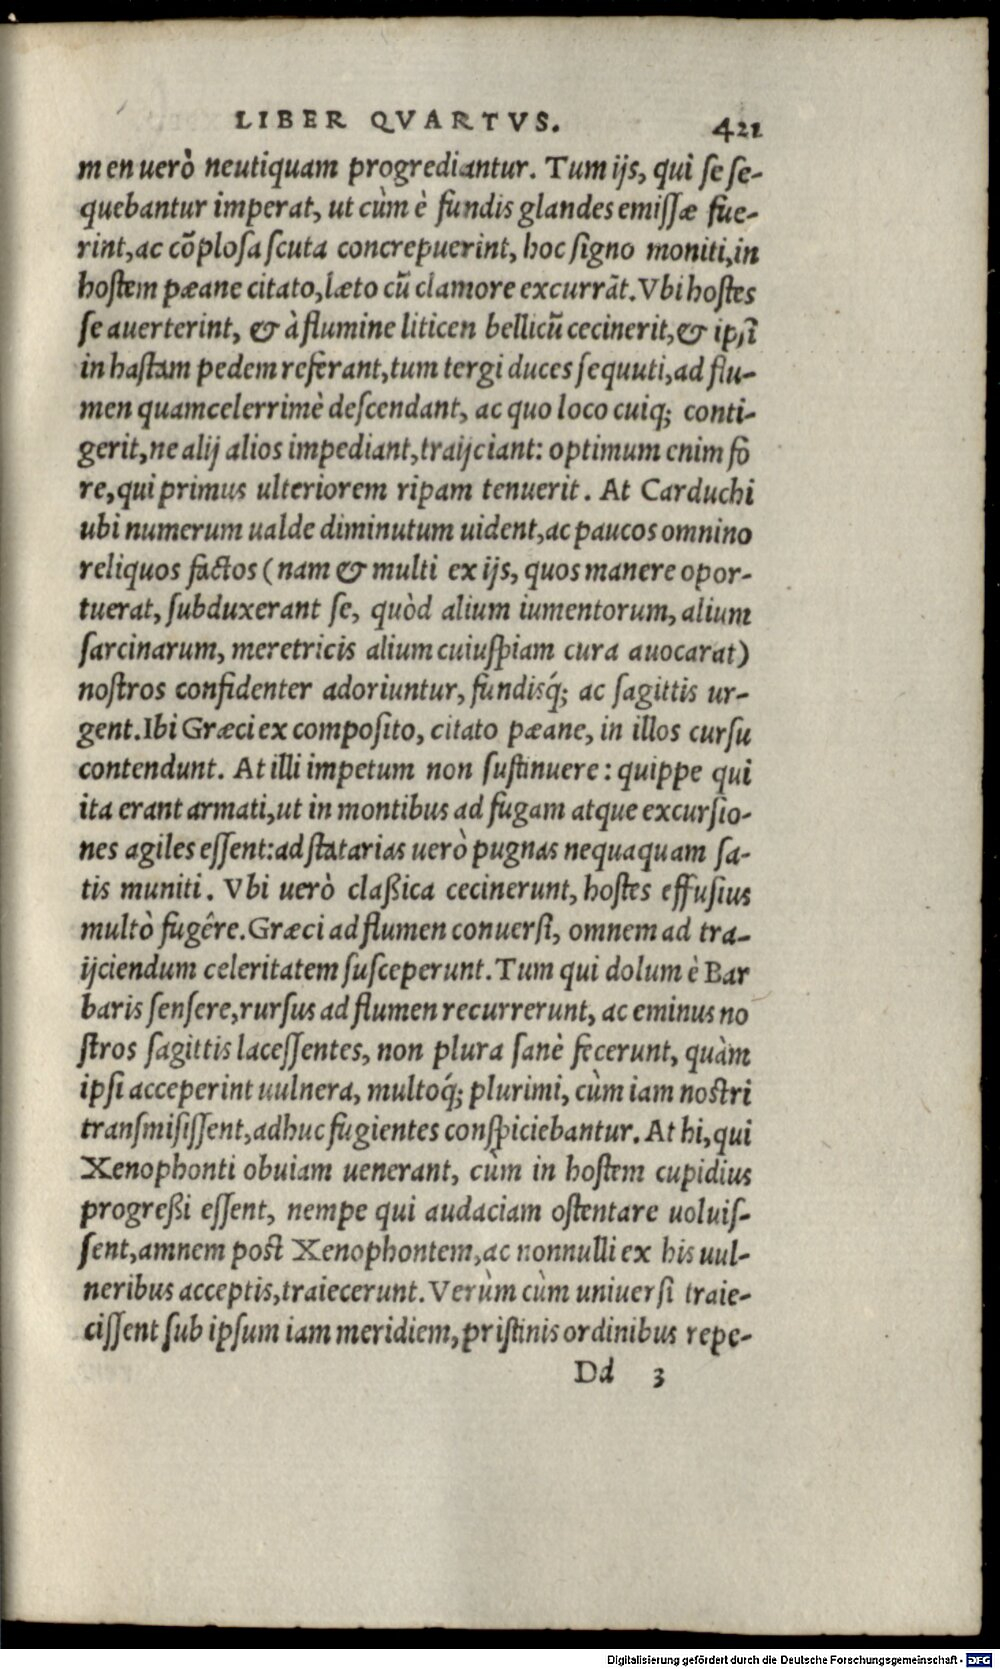 LIBER QVARTVS. 421
men uerò neutiquam progrediantur. Tum ijs, qui se se-
quebantur imperat, ut cùm è fundis glandes emissæ fue-
rint, ac cōplosa scuta concrepuerint, hoc signo moniti, in
hostem pæane citato, læto cū clamore excurrāt. Vbi hostes
se auerterint, & à flumine liticen bellicū cecinerit, & ipsi
in hastam pedem referant, tum tergi duces sequuti, ad flu-
men quamcelerrimè descendant, ac quo loco cuiq; conti-
gerit, ne alij alios impediant, traijciant: optimum enim fo
re, qui primus ulteriorem ripam tenuerit. At Carduchi
ubi numerum ualde diminutum uident, ac paucos omnino
reliquos factos (nam & multi ex ijs, quos manere opor-
tuerat, subduxerant se, quòd alium iumentorum, alium
sarcinarum, meretricis alium cuiuspiam cura auocarat)
nostros confidenter adoriuntur, fundisq́; ac sagittis ur-
gent. Ibi Græci ex composito, citato pæane, in illos cursu
contendunt. At illi impetum non sustinuere: quippe qui
ita erant armati, ut in montibus ad fugam atque excursio-
nes agiles essent: ad statarias uerò pugnas nequaquam sa-
tis muniti. Vbi uerò claßica cecinerunt, hostes effusius
multò fugêre. Græci ad flumen conuersi, omnem ad tra-
ijciendum celeritatem susceperunt. Tum qui dolum è Bar
baris sensere, rursus ad flumen recurrerunt, ac eminus no
stros sagittis lacessentes, non plura sanè fecerunt, quàm
ipsi acceperint uulnera, multoq́; plurimi, cùm iam nostri
transmisissent, adhuc fugientes conspiciebantur. At hi, qui
Xenophonti obuiam uenerant, cùm in hostem cupidius
progreßi essent, nempe qui audaciam ostentare uoluis-
sent, amnem post Xenophontem, ac nonnulli ex his uul-
neribus acceptis, traiecerunt. Verùm cùm uniuersi traie-
cissent sub ipsum iam meridiem, pristinis ordinibus repe-
Dd 3
Digitalisierung gefördert durch die Deutsche Forschungsgemeinschaft - DFG